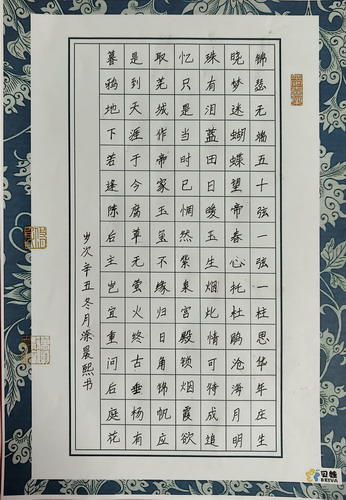 锦瑟无端五十弦一弦一柱思华年庄生
晓梦迷蝴蝶望帝春心托杜鹃沧海月明
珠有泪蓝田日暖玉生烟此情可待成追
忆只是当时已惘然紫泉宫殿锁烟霞欲
取芜城作帝家玉玺不缘归日角锦帆应
是到天涯于今腐草无萤火终古垂杨有
暮鸦地下若逢陈后主岂宜重问后庭花
岁次辛丑冬月涂晨熙书